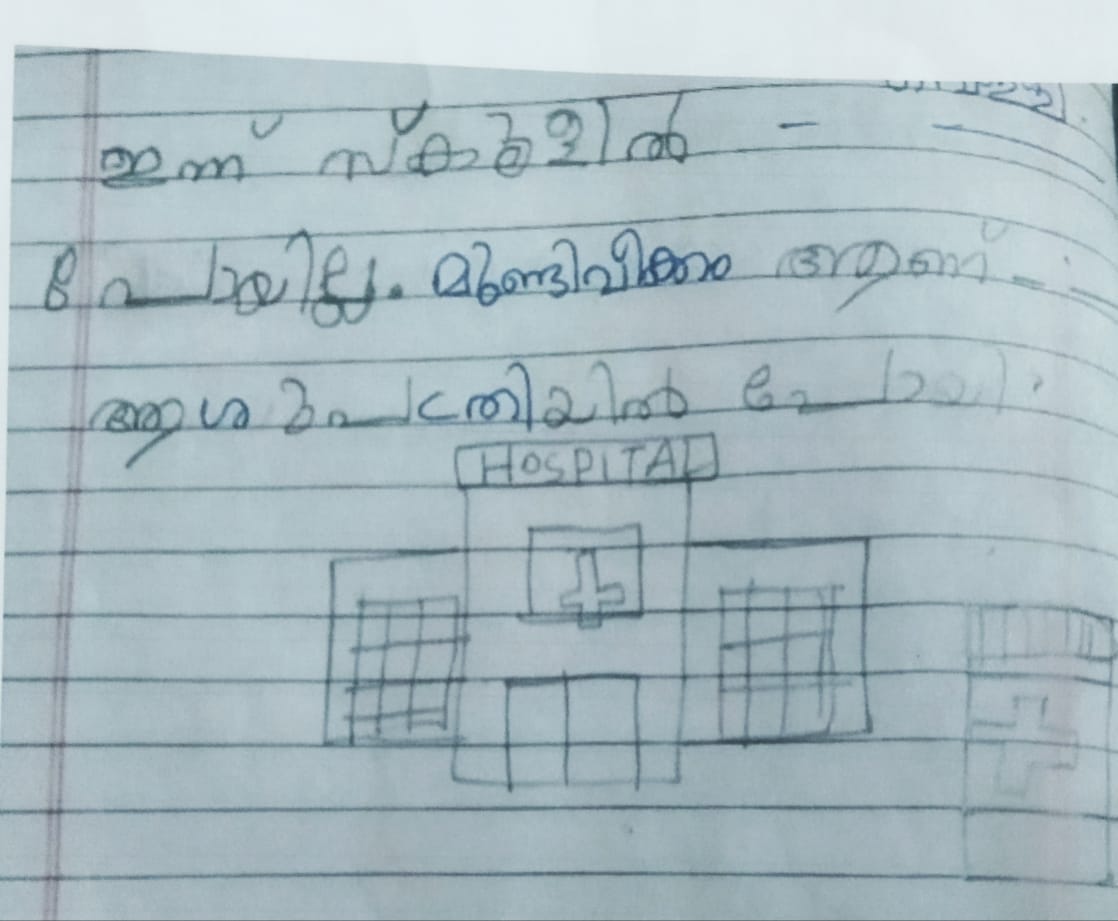 ഇന്ന് സ്കൂളിൽ -
പോയില്ല. മുണ്ടിവീക്കം ആണ്
ആശുപത്രിയിൽ പോയി.
HOSPITAL